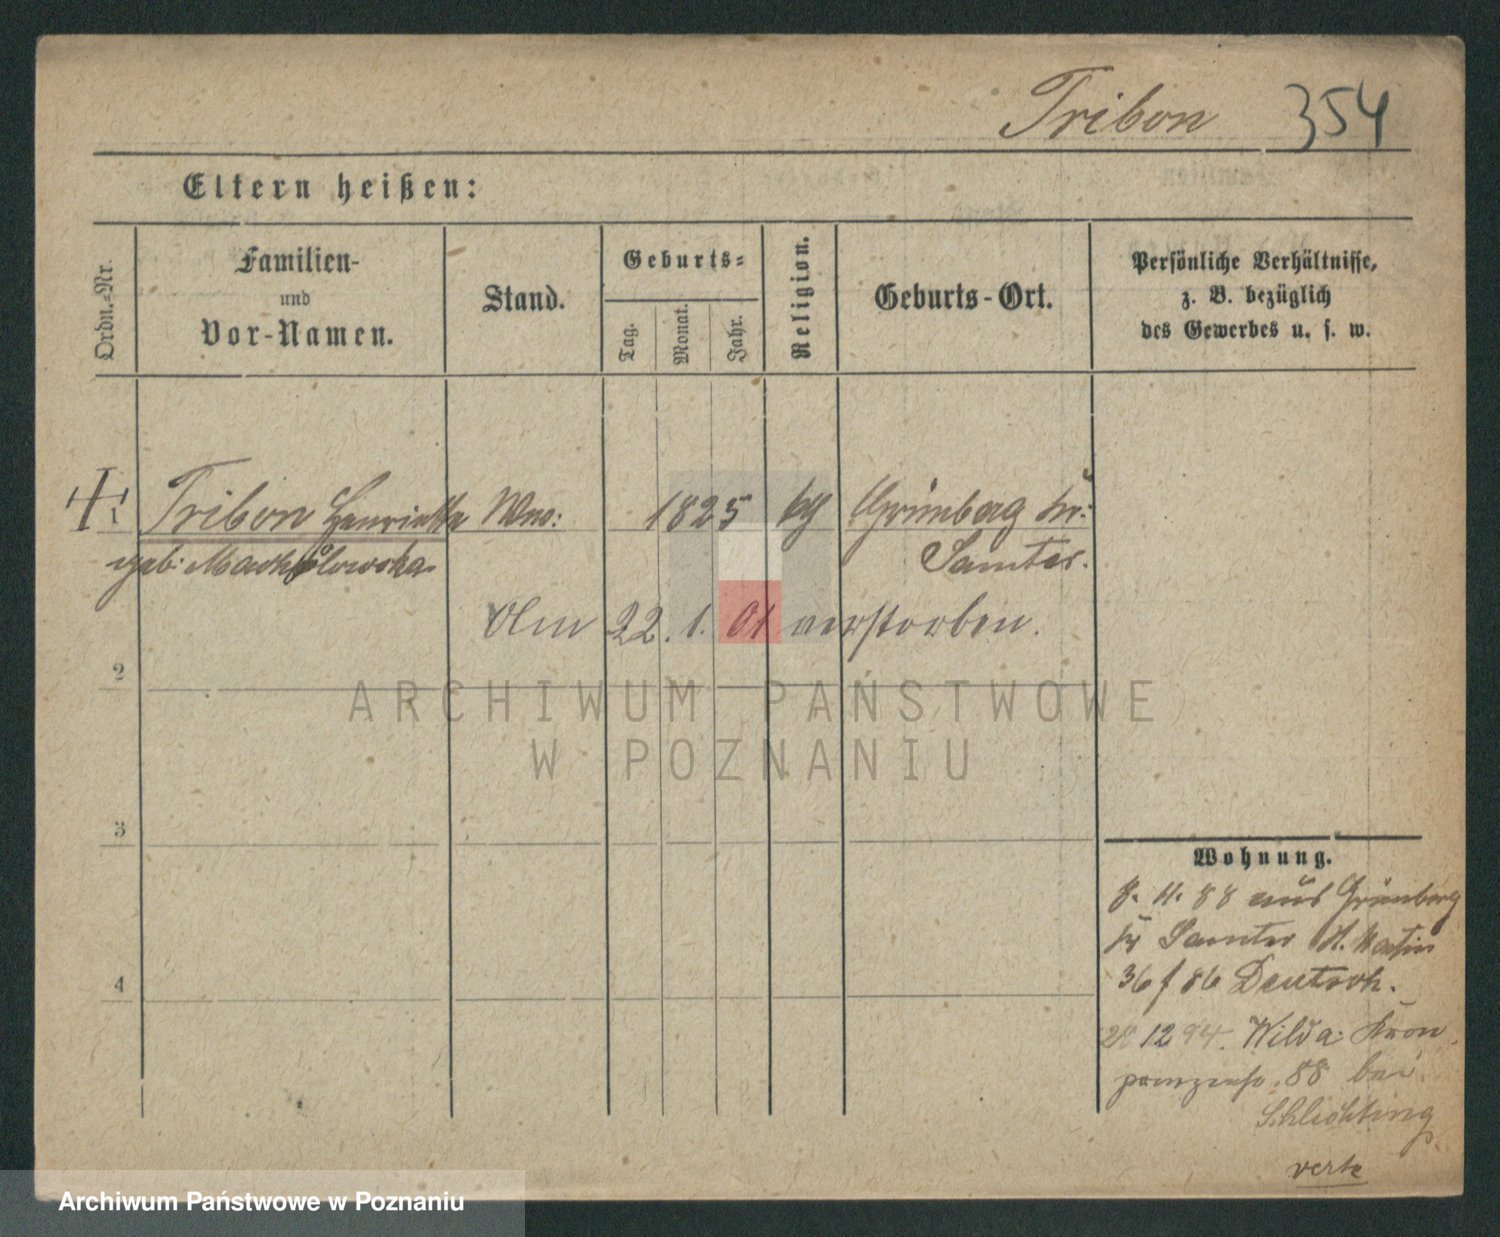 Tribon 354
Eltern heißen:
Ordn.-Nr.
Familien-
und
Vor-Namen.
Stand.
Geburts-
Tag.
Monat.
Jahr.
Religion.
Geburts-Ort.
Persönliche Verhältnisse,
z. B. bezüglich
des Gewerbes u. s. w.
1 Tribon Henrietta Wwe: 1825 kg Grünberg Kr:
geb: Samter.
Am 22. 1. 01 verstorben.
2
3
4
Wohnung.
8. 11. 88 aus Grünberg
Kr Samter St. Martin
36 f 86 Deutsch.
12 94. Wilda Kron
prinzenst. 88 bei
Schlichting
verte
ARCHIWUM PAŃSTWOWE
W POZNANIU
Archiwum Państwowe w Poznaniu